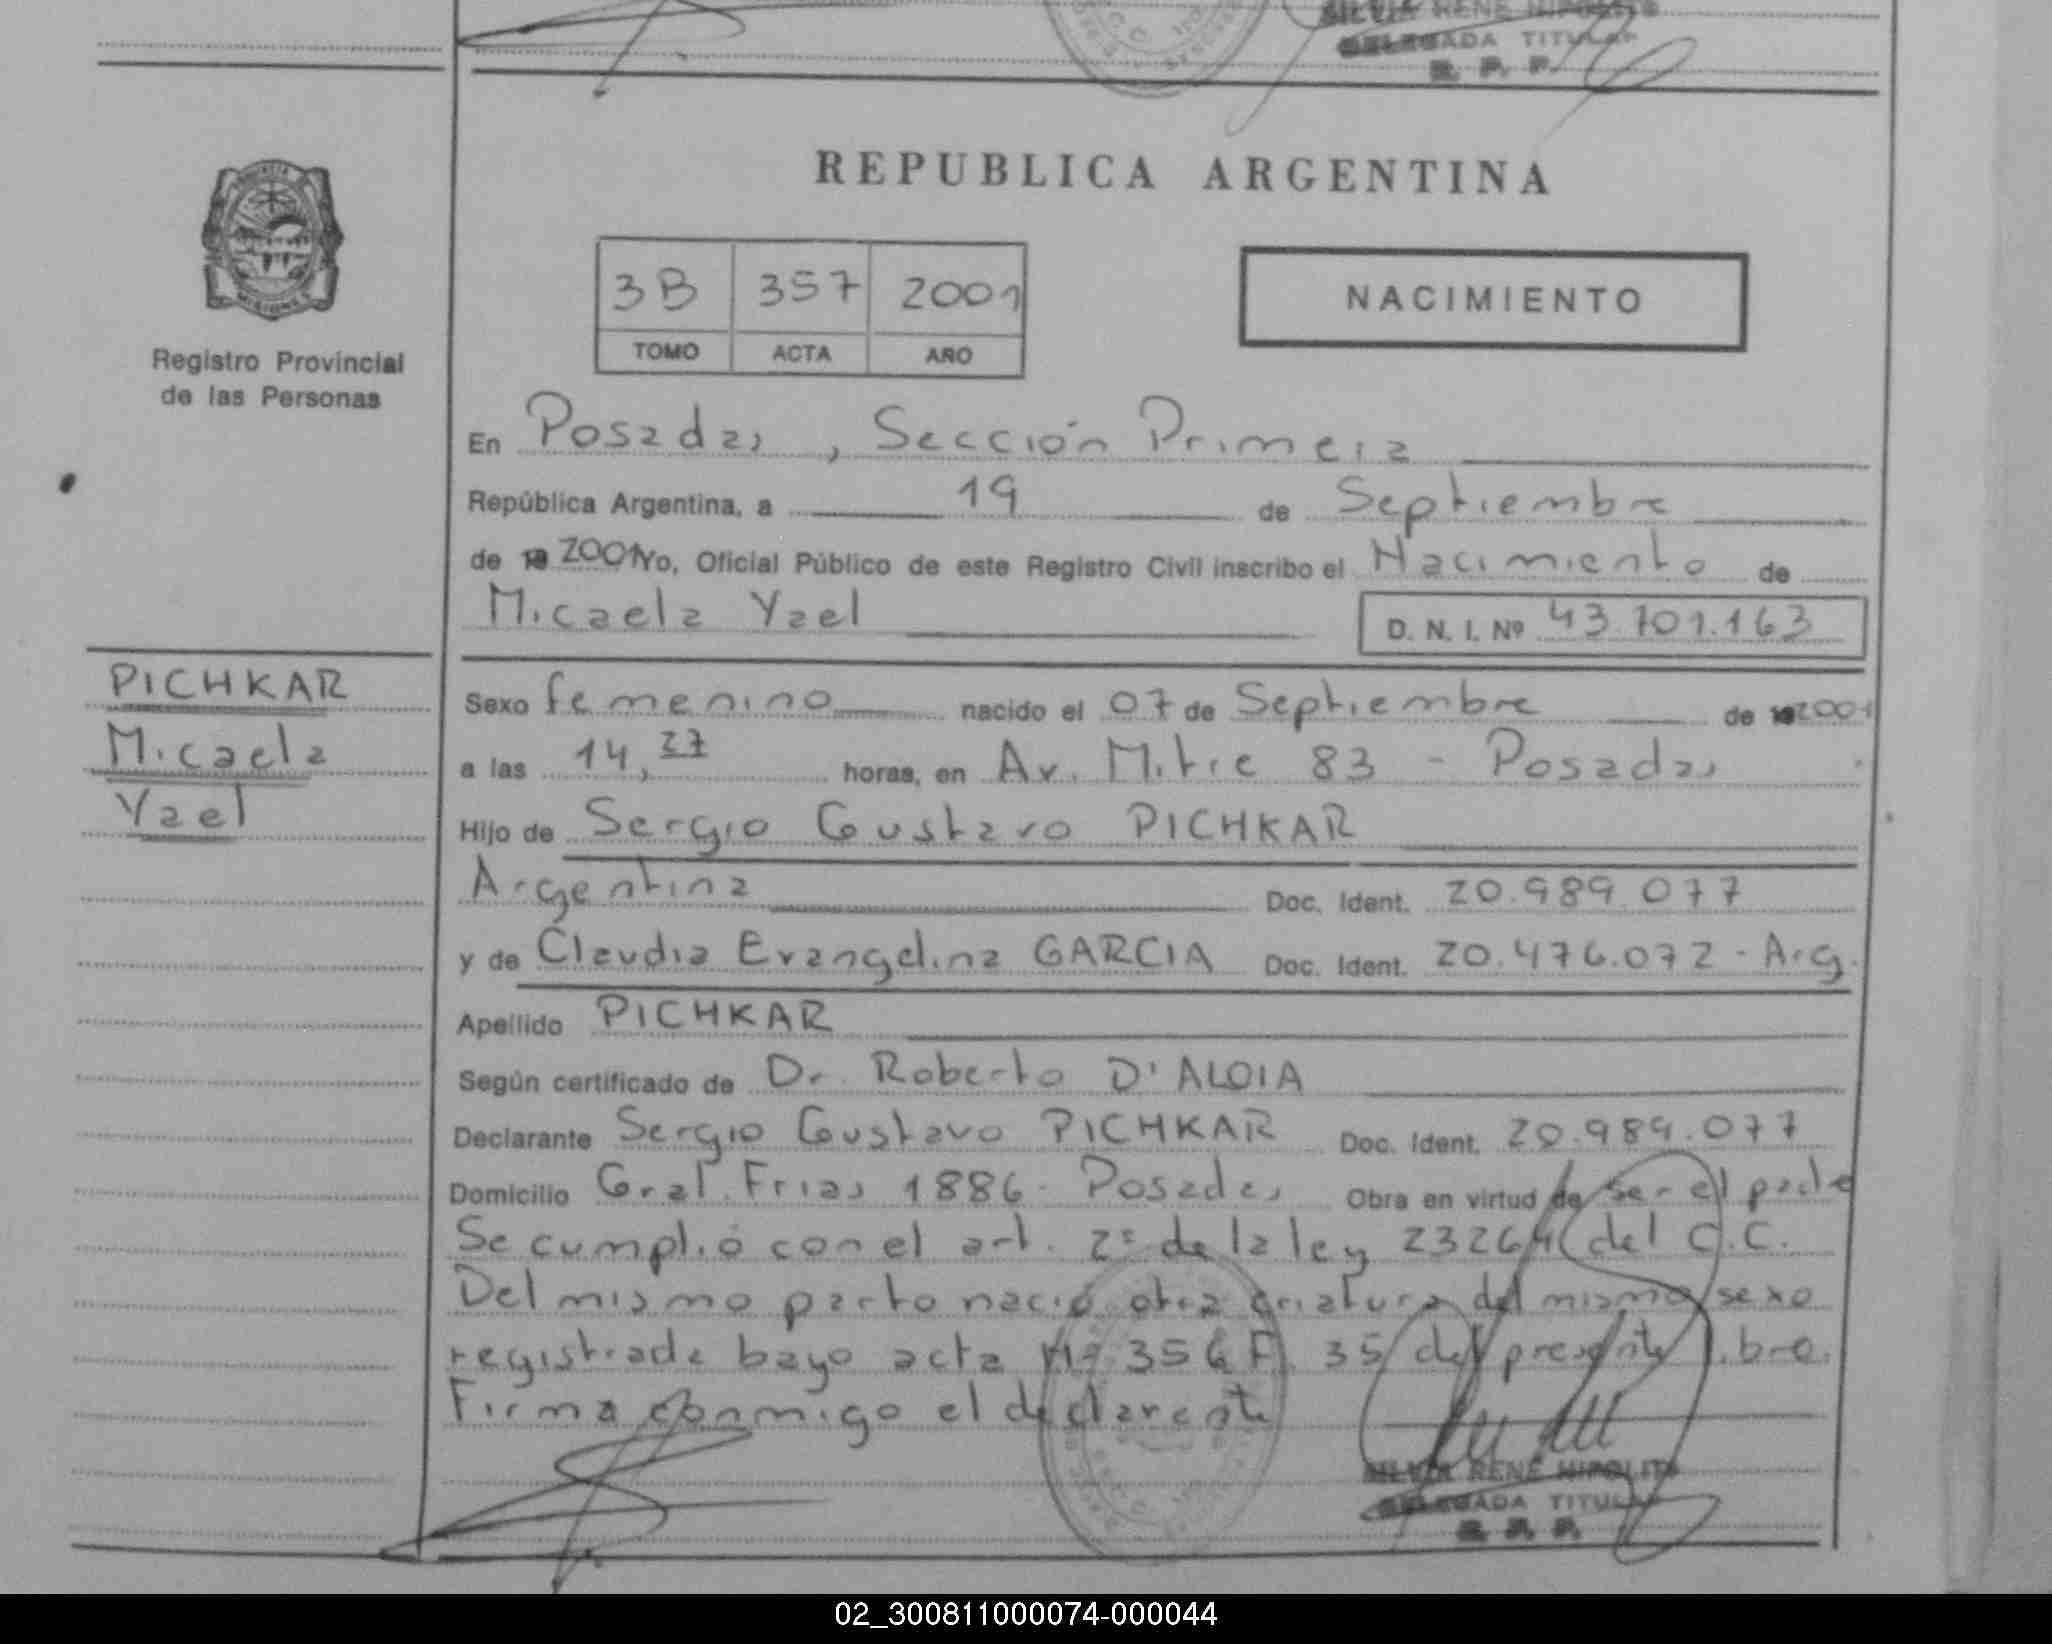 SILVIA RENE HIPOLITO
DELEGADA TITULAR
R. P. P.
REPUBLICA ARGENTINA
3B 357 2001
TOMO ACTA AÑO
NACIMIENTO
MISIONES
Registro Provincial
de las Personas
En Posadas, Sección Primera
República Argentina, a 19 de Septiembre
de 19 2001 Yo, Oficial Público de este Registro Civil inscribo el Nacimiento de
Micaela Yael D. N. I. Nº 43.701.163
PICHKAR
Micaela
Yael
Sexo femenino nacido el 07 de Septiembre de 19 2001
a las 14,27 horas, en Av. Mitre 83 - Posadas
Hijo de Sergio Gustavo PICHKAR
Argentina Doc. Ident. 20.989.077
y de Claudia Evangelina GARCIA Doc. Ident. 20.476.072 - Arg.
Apellido PICHKAR
Según certificado de Dr. Roberto D'ALOIA
Declarante Sergio Gustavo PICHKAR Doc. Ident. 20.989.077
Domicilio Gral. Frias 1886 - Posadas Obra en virtud de ser el padre
Se cumplió con el art. 2º de la ley 23264 del C.C.
Del mismo parto nació otra criatura del mismo sexo
registrada bayo acta Nº 356 F. 35 del presente libro.
Firma conmigo el declarante
SILVIA RENE HIPOLITO
DELEGADA TITULAR
R. P. P.
02_300811000074-000044